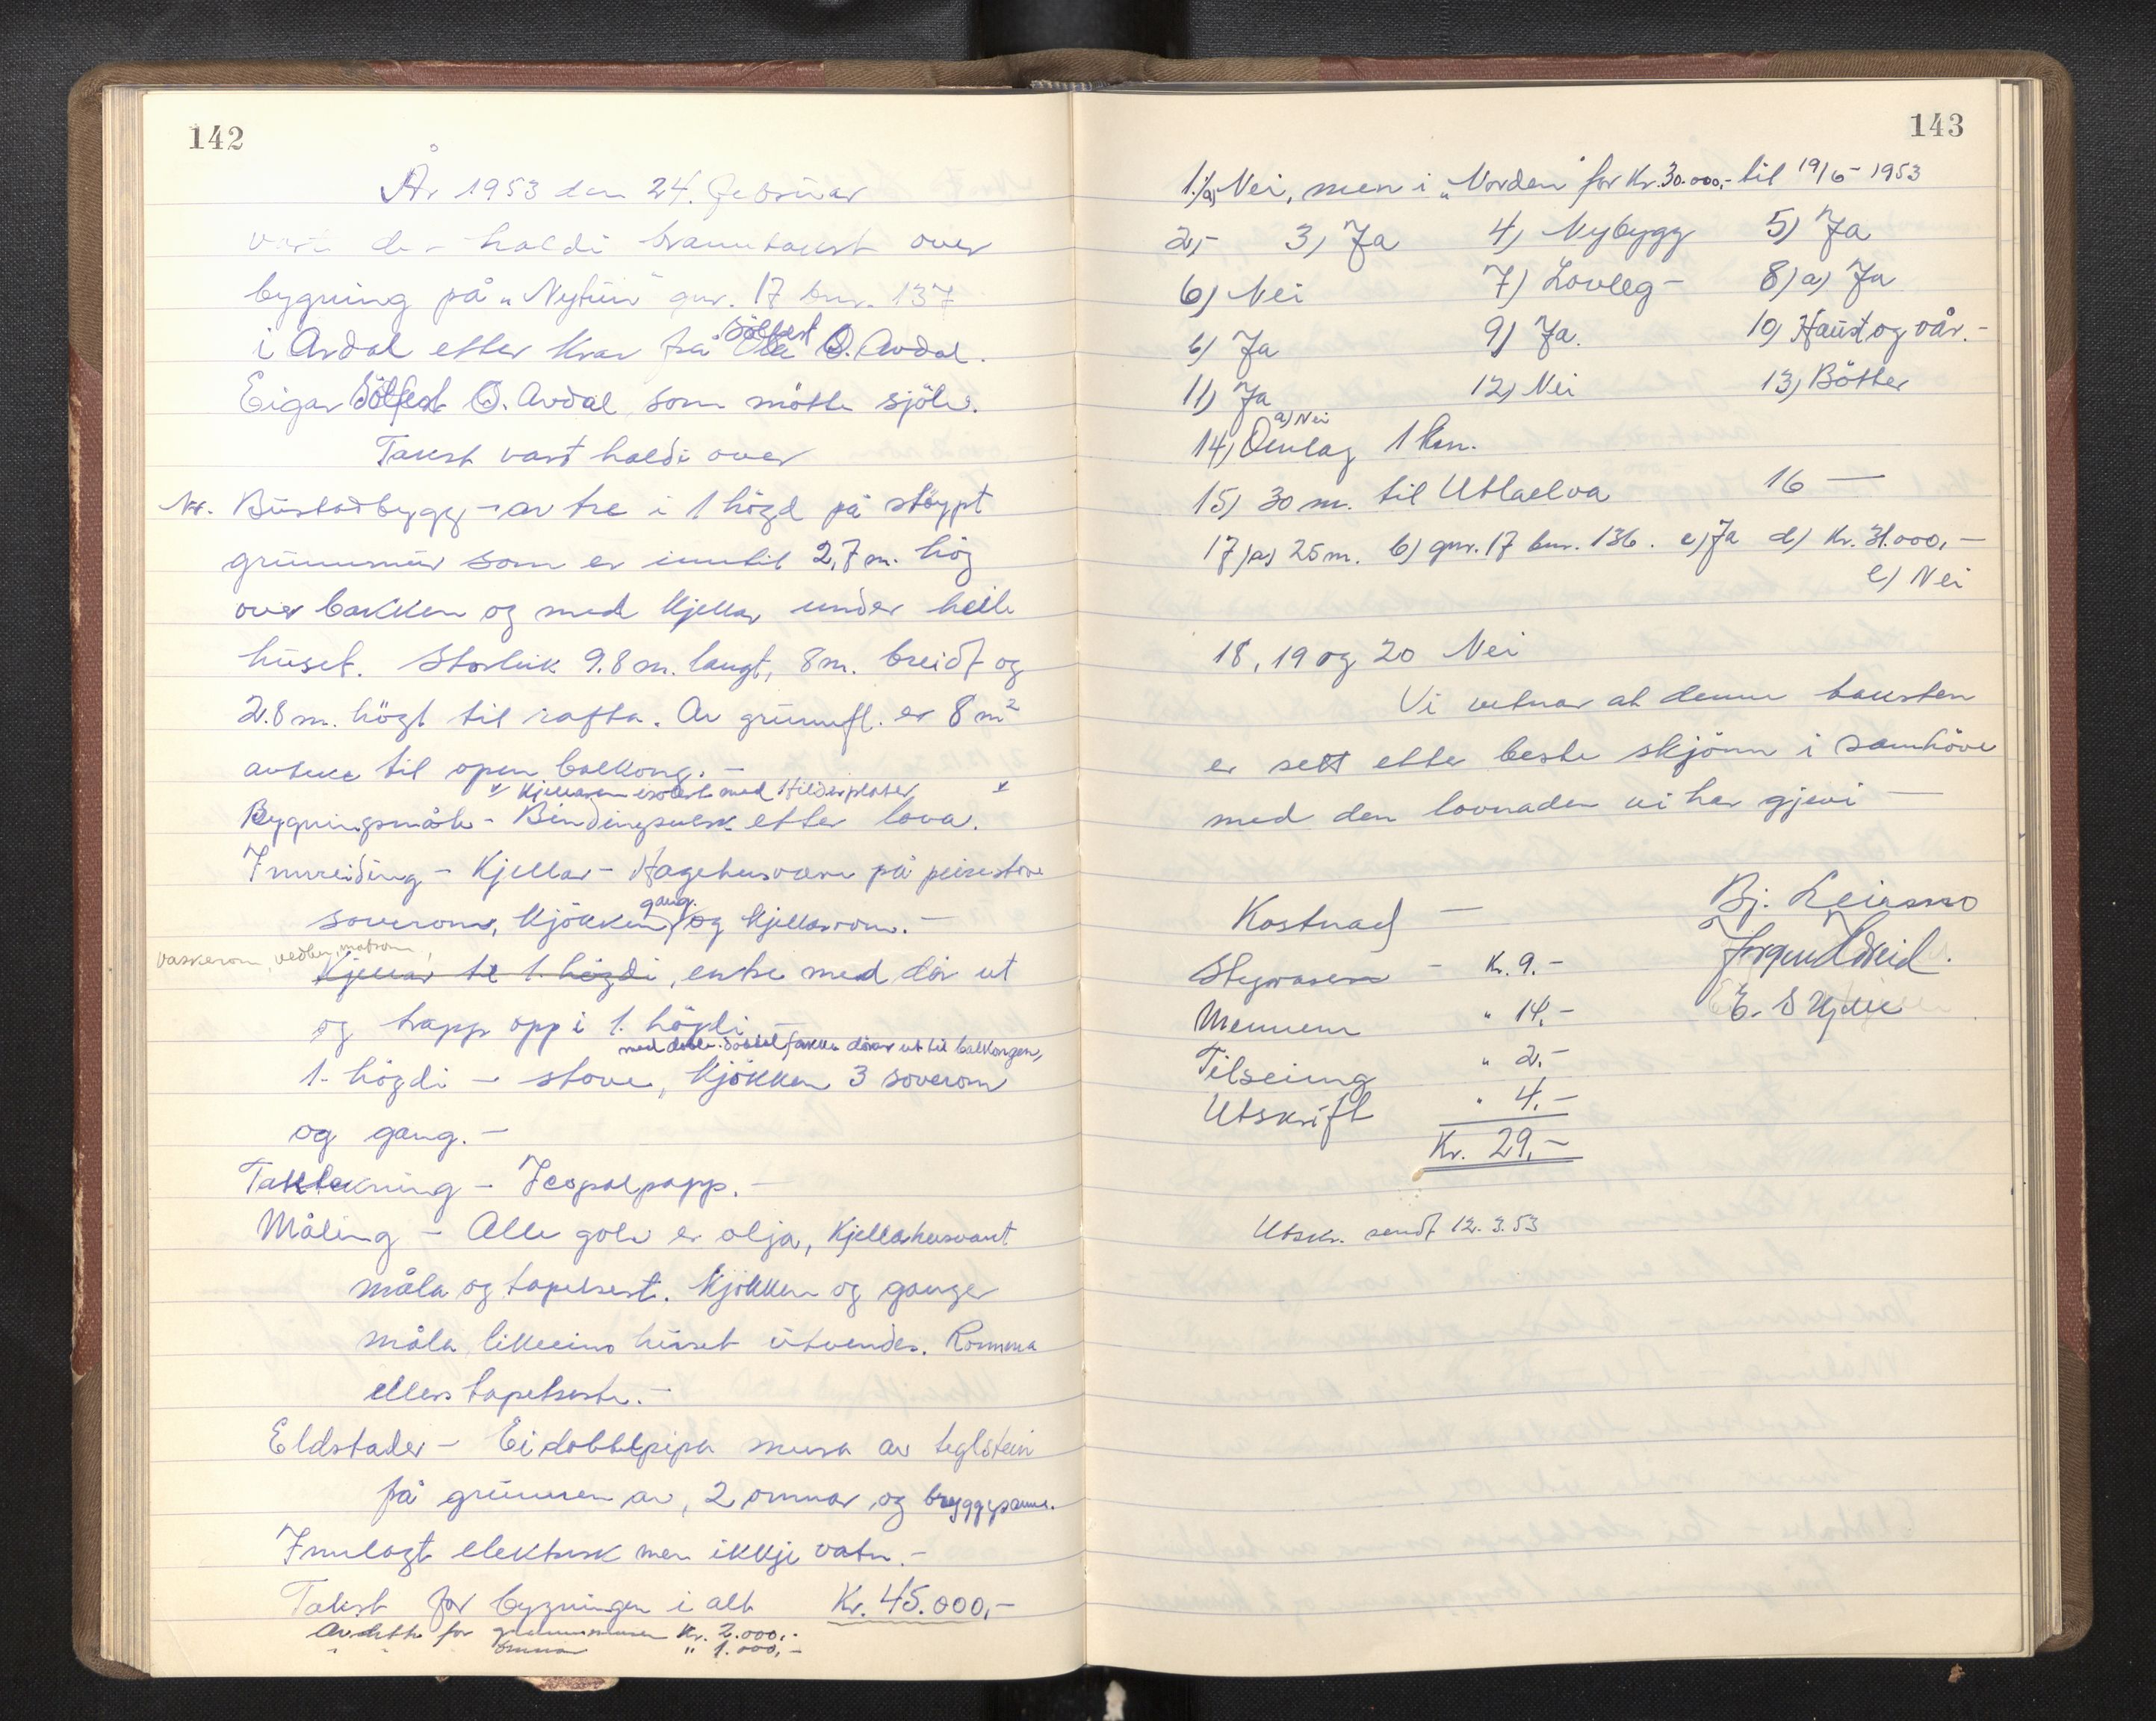 142
År 1953 den 24. februar
vart de haldi branntakst over
bygning på „Nytun" gnr. 17 bnr. 137
Sölfest
i Årdal etter krav frå O. Avdal.
Eigar Sölfest O. Avdal, som måtte sjölv.
Takst vart haldi over
Nr. Bustadbygg - av tre i 1 högd på stöypt
grunnmur som er inntil 2,7 m. hög
over bakken og med kjellar under heile
huset. Storleik 9.8 m. langt, 8 m. breidt og
2.8 m. högt til rafta. Av grunnfl. er 8 m²
avteke til open balkong. -
Kjellaren isolert med plater
Bygningsmåte - Bindingsverk etter lova.
Innreiding - Kjellar - Hagehusvære på peisestove
gang.
soverom, kjökken og kjellarrom. -
vaskerom, vedbu, matrom,
Kjellar til 1. högdi, entre med dör ut
og trapp opp i 1. högdi -
med doble dörar ut til balkongen,
1. högdi - stove, kjökken 3 soverom
og gang. -
Taktekning - Icopalpapp. -
Måling - Alle golv er olja, kjellarhusvært
måla og tapetsert. kjökken og ganger
måla likeeins huset utvendes. Romma
ellers tapetserte. -
Eldstader - Ei dobbelpipa mura av teglstein
frå grunnen av, 2 omnar og bryggpanne.
Innlagt elektrisk men ikkje vatn. -
Takst for bygningen i alt Kr. 45.000,-
Av dette for grunnmuren Kr. 2.000,-
" " omnar " 1.000,-
143
1./a) Nei, men i „Norden" for Kr. 30.000,- til 19/6 - 1953
2,- 3) Ja 4) Nybygg 5) Ja
6) Nei 7) Lovleg - 8) a) Ja
b) Ja 9) Ja. 10) Haust og vår. -
11) Ja 12) Nei 13) Bötter
a) Nei
14) Omlag 1 km.
15) 30 m. til Utlaelva 16 —
17) a) 25 m. b) gnr. 17 bnr. 136. c) Ja d) Kr. 31.000,-
e) Nei
18, 19 og 20 Nei
Vi vitnar at denne taksten
er sett etter beste skjönn i samhöve
med den lovnaden vi har gjevi —
Kostnad —
Bj.
Styraren - Kr. 9.-
Mennene " 14.-
Tilseiing " 2.-
Utskrift " 4.-
Kr. 29,-
Utskr. sendt 12.3.53